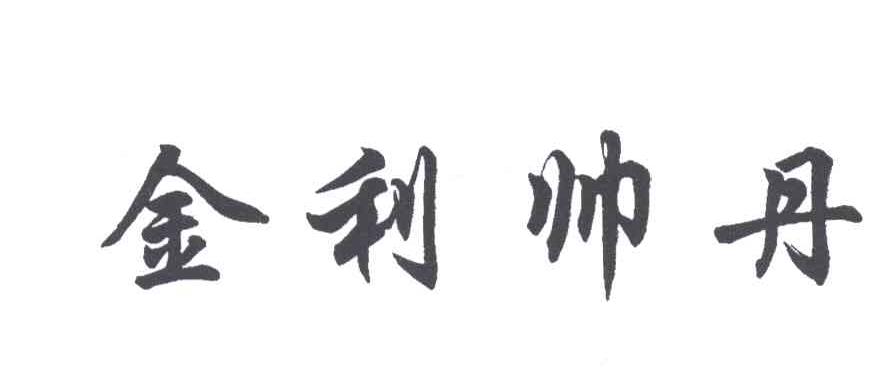 金利帅丹